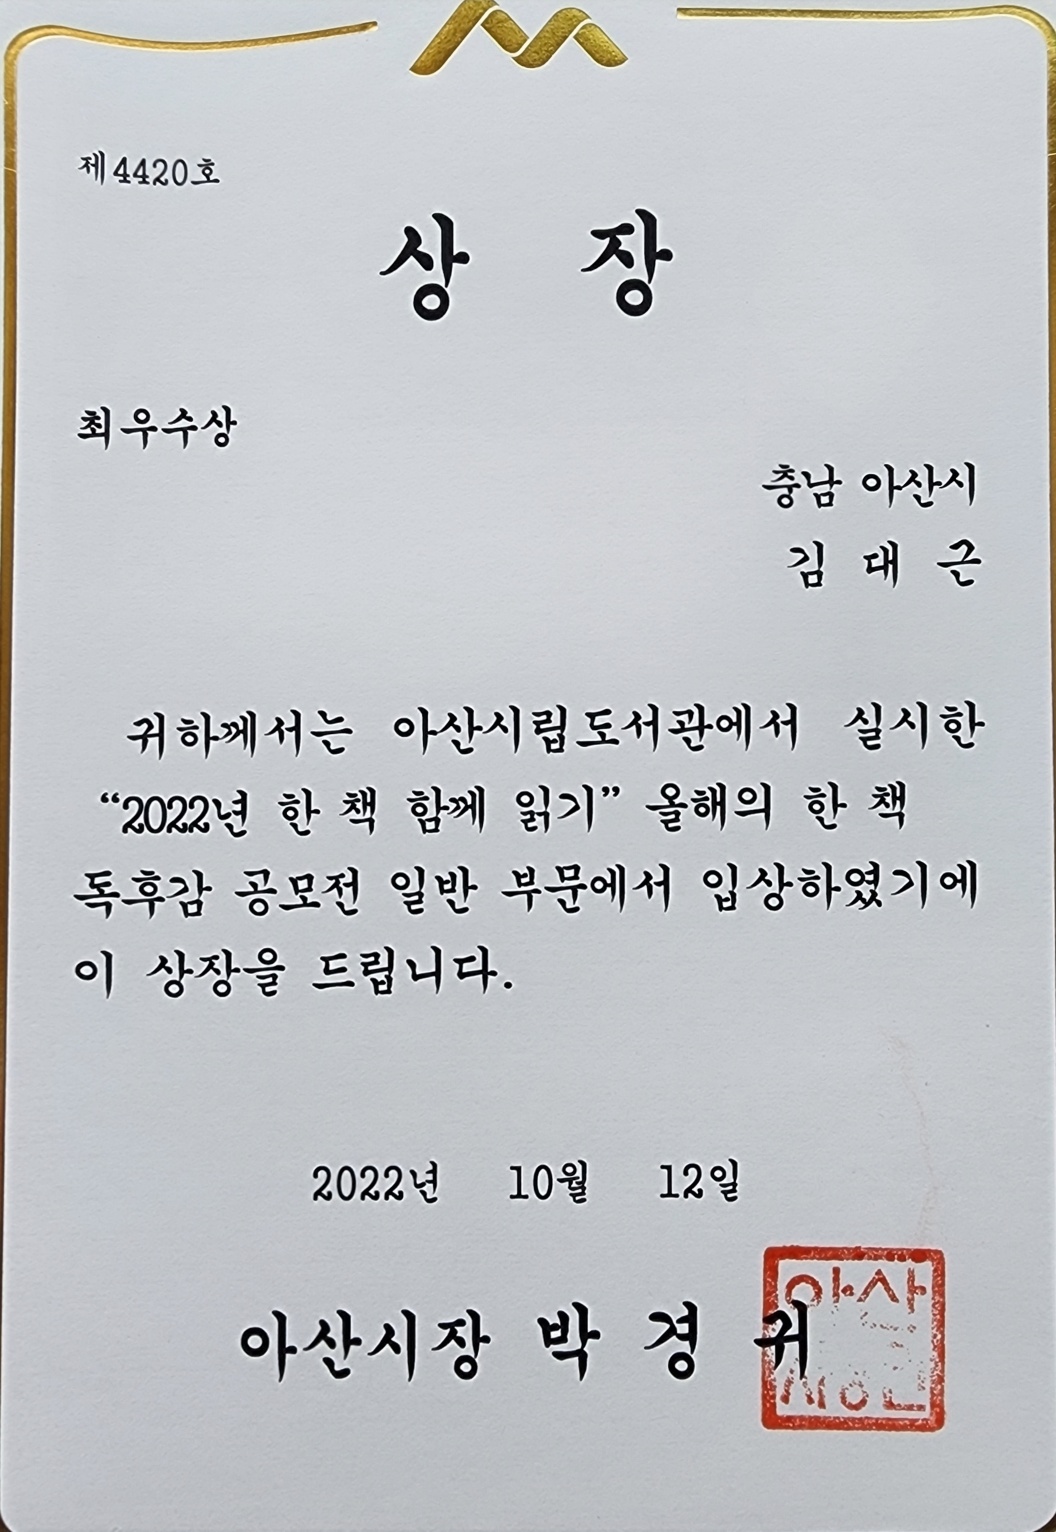 제4420호
상 장
최우수상
충남 아산시
김 대 근
귀하께서는 아산시립도서관에서 실시한
“2022년 한 책 함께 읽기” 올해의 한 책
독후감 공모전 일반 부문에서 입상하였기에
이 상장을 드립니다.
2022년 10월 12일
아산시장 박 경 귀
아산